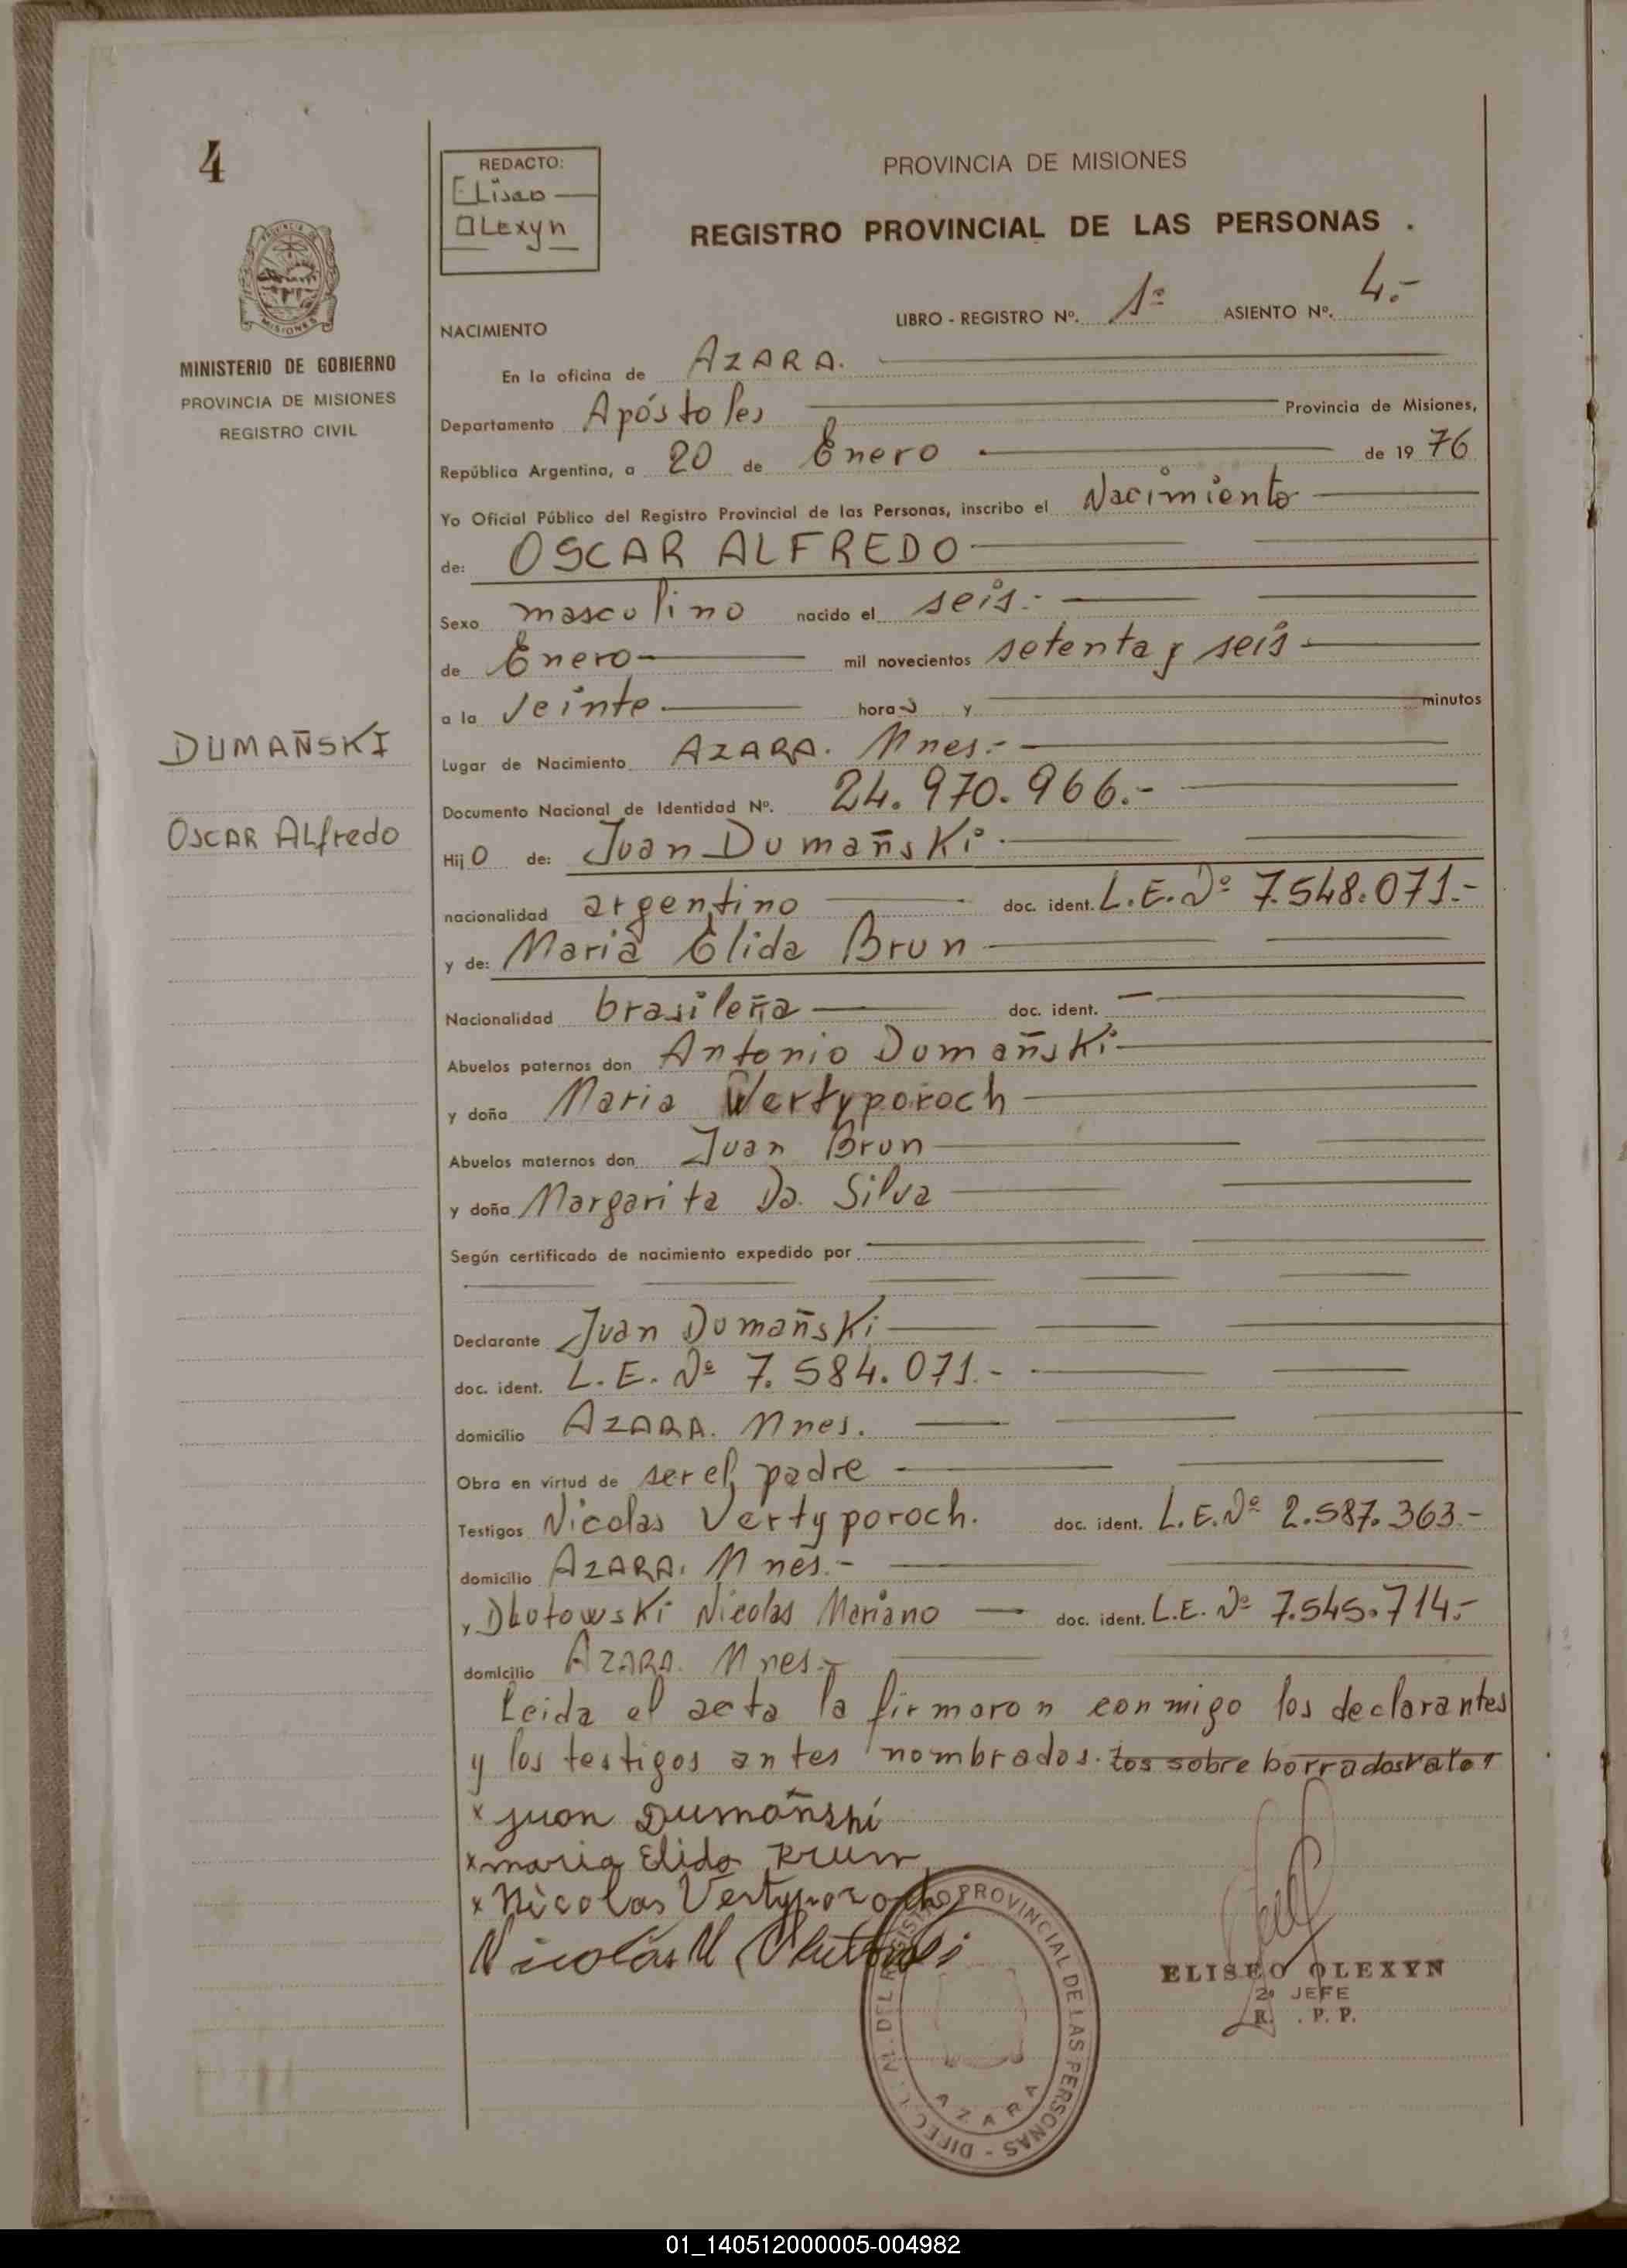 4
REDACTO:
Eliseo
Olexyn
PROVINCIA DE MISIONES
REGISTRO PROVINCIAL DE LAS PERSONAS .
LIBRO - REGISTRO Nº. 1º ASIENTO Nº. 4.-
PROVINCIA DE
MISIONES
MINISTERIO DE GOBIERNO
PROVINCIA DE MISIONES
REGISTRO CIVIL
NACIMIENTO
En la oficina de AZARA.
Departamento Apóstoles Provincia de Misiones,
República Argentina, a 20 de Enero de 19 76
Yo Oficial Público del Registro Provincial de las Personas, inscribo el Nacimiento
de: OSCAR ALFREDO
Sexo masculino nacido el seis.-
de Enero mil novecientos setenta y seis
a la veinte horas y minutos
DUMAÑSKI
OSCAR ALfredo
Lugar de Nacimiento AZARA. Mnes.-
Documento Nacional de Identidad Nº. 24.970.966.-
Hijo de: Juan Dumañski
nacionalidad argentino doc. ident. L.E.Nº 7.548.071.-
y de: Maria Elida Brun
Nacionalidad brasileña doc. ident. —
Abuelos paternos don Antonio Dumañski
y doña Maria Wertyporoch
Abuelos maternos don Juan Brun
y doña Margarita Da. Silva
Según certificado de nacimiento expedido por
Declarante Juan Dumañski
doc. ident. L.E. Nº 7.584.071.-
domicilio AZARA. Mnes.
Obra en virtud de ser el padre
Testigos Nicolas Vertyporoch. doc. ident. L.E.Nº 2.587.363.-
domicilio AZARA. Mnes.-
y Dlutowski Nicolas Mariano — doc. ident. L.E. Nº 7.545.714.-
domicilio AZARA. Mnes.-
Leida el acta la firmaron conmigo los declarantes
y los testigos antes nombrados. tos sobre borrados valen
x Juan Dumañski
x maria Elida Brun
x Nicolas Vertyporoch
Nicolás M Dlutowski
DIRECC. GRAL. DEL REGISTRO PROVINCIAL DE LAS PERSONAS -
AZARA
ELISEO OLEXYN
2º JEFE
R. . P. P.
01_140512000005-004982